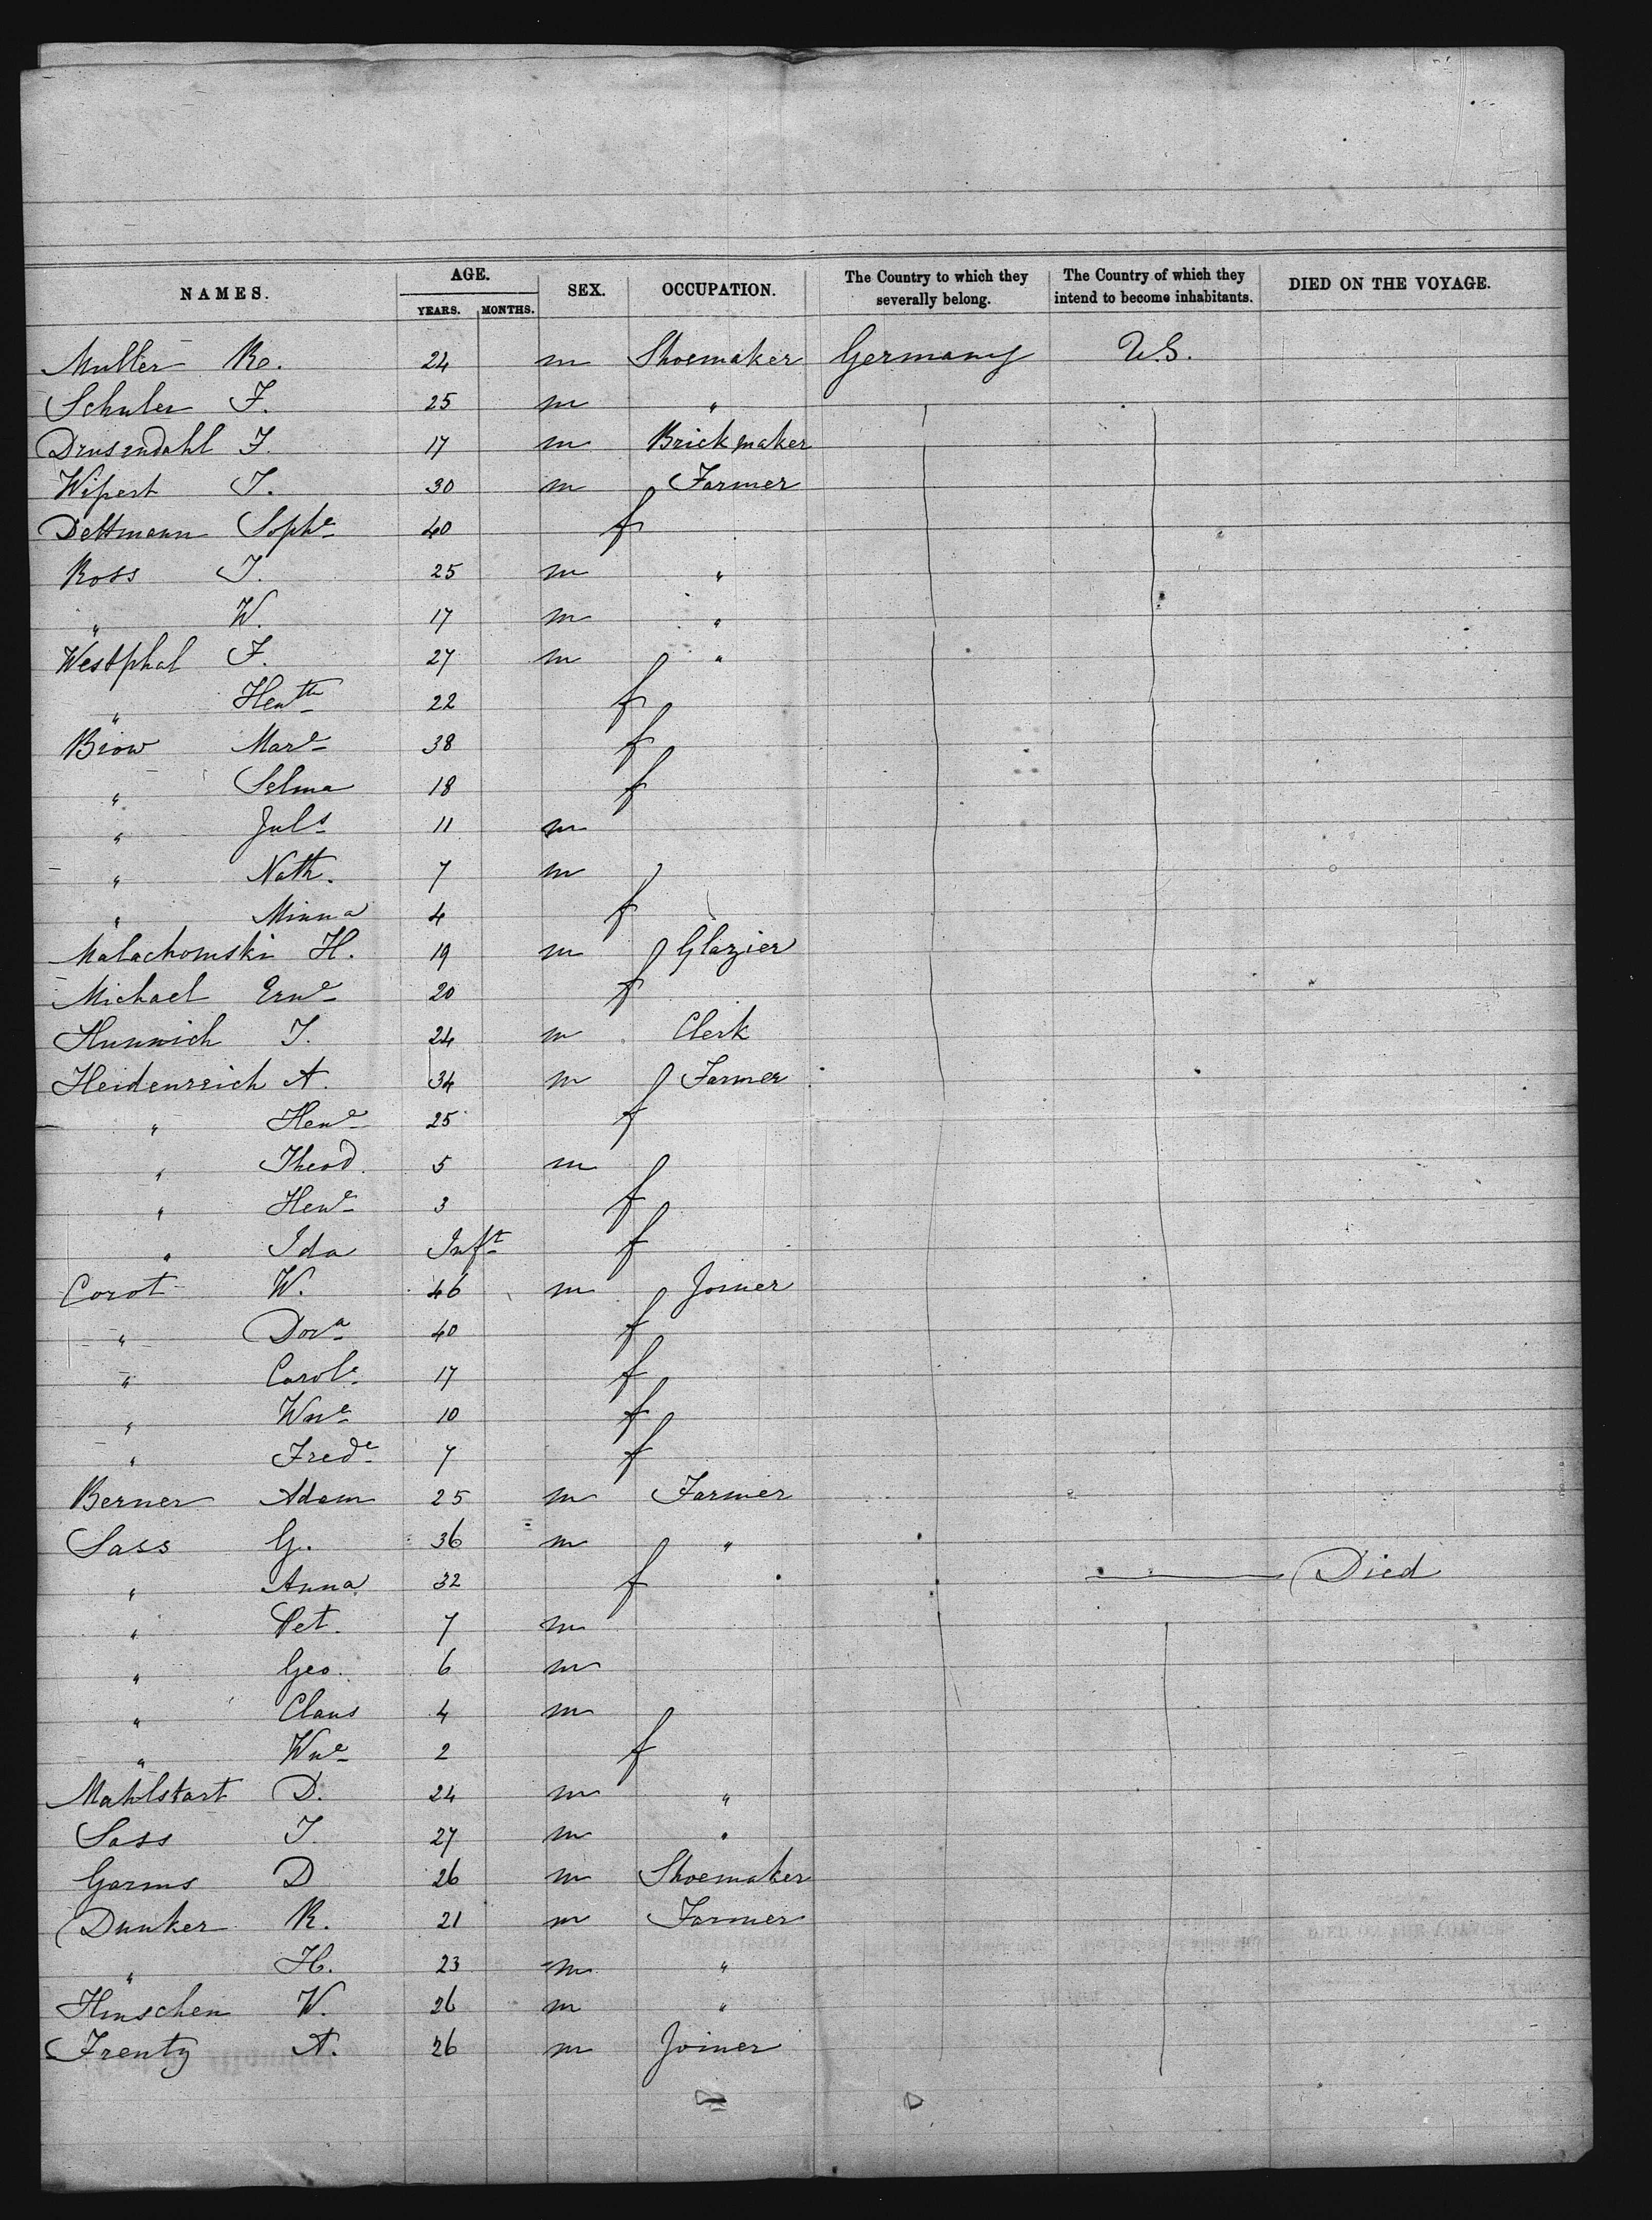 NAMES. AGE. SEX. OCCUPATION. The Country to which they severally belong. The Country of which they intend to become inhabitants. DIED ON THE VOYAGE.
YEARS. MONTHS.
Muller 24 m Shoemaker Germany U.S.
Schuler F. 25 m "
Drusendahl J. 17 m Brickmaker
Wipert J. 30 m Farmer
Dettmann Sophe 40 f
Ross J. 25 m "
" W. 17 m "
Westphal F. 27 m "
" 22 f
Brow Mare 38 f
" Selma 18 f
" Juls 11 m
" Nath. 7 m
" Minna 4 f
Malachomski H. 19 m Glazier
Michael Erne 20 f
Hunnich J. 24 m Clerk
Heidenreich A. 34 m Farmer
" Hene 25 f
" Theod. 5 m
" Hene 3 f
" Ida Inft f
Corot W. 46 m Joiner
" Dora 40 f
" Carole 17 f
" Wne 10 f
" Frede 7 f
Berner Adam 25 m Farmer
Sass G. 36 m "
" Anna 32 f Died
" Pet. 7 m
" Geo. 6 m
" Claus 4 m
" Wne 2 f
Mahlstart D. 24 m "
Sass J. 27 m "
Garms D 26 m Shoemaker
Dunker R. 21 m Farmer
" H. 23 m "
Hinschen W. 26 m "
Frenty A. 26 m Joiner